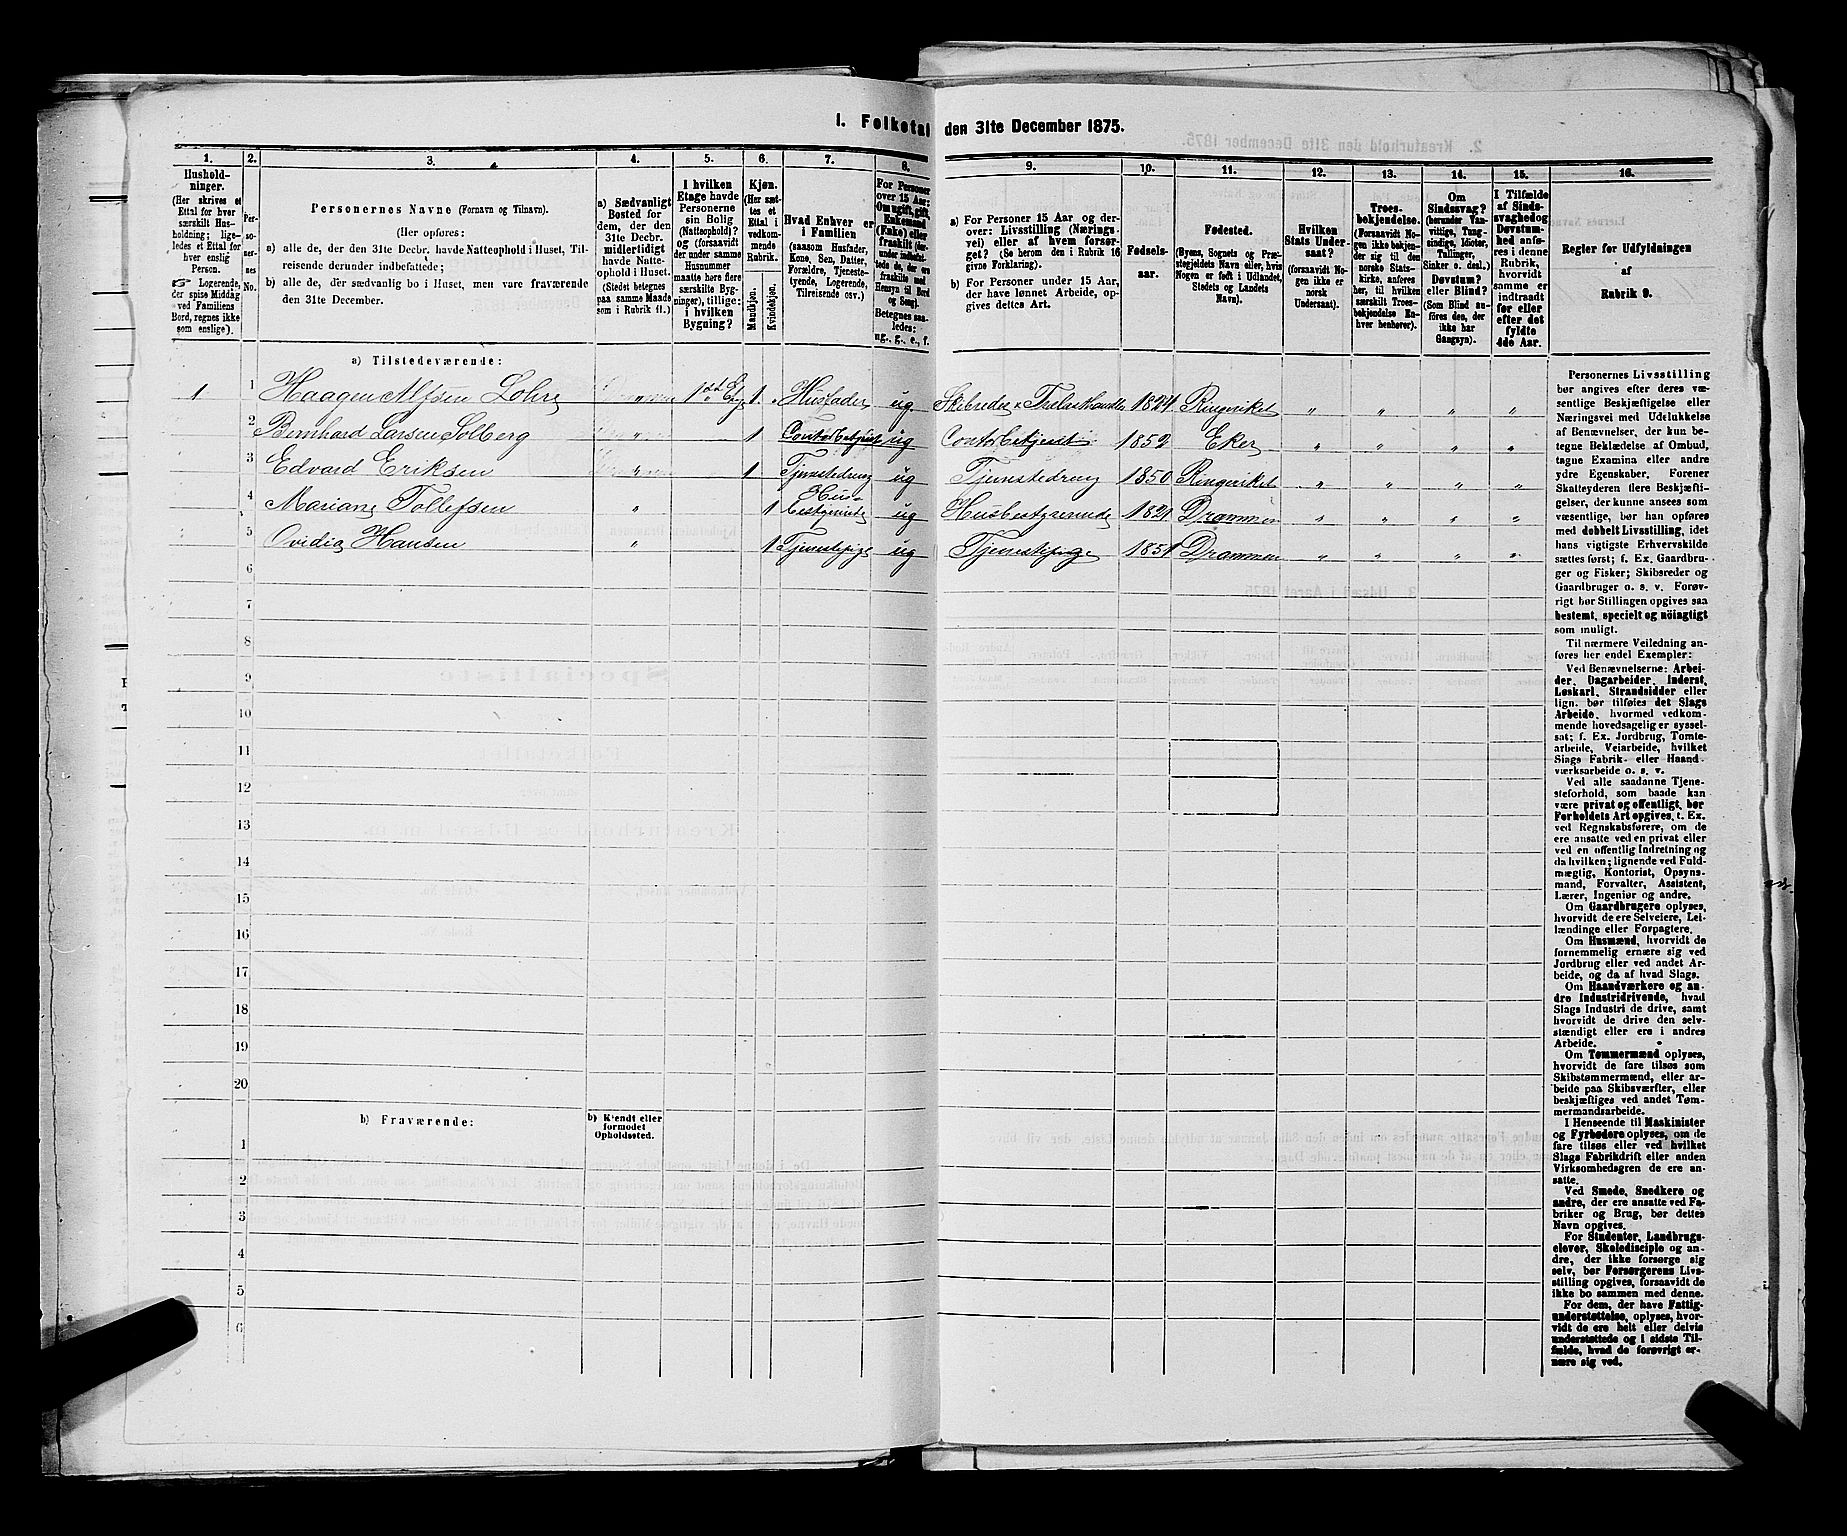 1. Folketal den 31te December 1875.
1. 2. 3. 4. 5. 6. 7. 8. 9. 10. 11. 12. 13. 14. 15. 16.
Hushold-
ninger.
(Her skrives et
Ettal for hver
særskilt Hus-
holdning; lige-
ledes et Ettal for
hver enslig
Person.
☛ Logerende,
der spise Middag
ved Familiens
Bord, regnes ikke
som enslige).
Per-
so-
ner-
nes
No.
Personernes Navne (Fornavn og Tilnavn).
(Her opføres:
a) alle de, der den 31te Decbr. havde Natteophold i Huset, Til-
reisende derunder indbefattede;
b) alle de, der sædvanlig bo i Huset, men vare fraværende
den 31te December.
a) Sædvanligt
Bosted for
dem, der den
31te Decbr.
midlertidigt
havde Natte-
ophold i Huset.
(Stedet betegnes
paa samme Maade
som i Rubrik 11.)
I hvilken
Etage havde
Personerne
sin Bolig
(Natteophold)?
og (forsaavidt
der under samme
Husnummer
maatte høre flere
særskilte Byg-
ninger), tillige:
i hvilken
Bygning?
Kjøn.
(Her sæt-
tes et
Ettal i
vedkom-
mende
Rubrik.
Mandkjøn.
Kvindekjøn.
Hvad Enhver er
i Familien
(saasom Husfader,
Kone, Søn, Datter,
Forældre, Tjeneste-
tyende, Logerende,
Tilreisende osv.)
For Personer
over 15 Aar:
Om ugift, gift,
Enkemand
(Enke) eller
fraskilt (der-
under indbefat-
tede de, der ere
fraskilte med
Hensyn til Bord
og Seng).
Betegnes saa-
ledes:
ug., g., e., f.
a) For Personer 15 Aar og der-
over: Livsstilling (Nærings-
vei) eller af hvem forsør-
get? (Se herom den i Rubrik 16
givne Forklaring).
b) For Personer under 15 Aar,
der have lønnet Arbeide, op-
gives dettes Art.
Fødsels-
aar.
Fødested.
(Byens, Sognets og Præ-
stegjeldets Navn eller, hvis
Nogen er født i Udlandet,
Stedets og Landets
Navn).
Hvilken
Stats Under-
saat?
(forsaavidt No-
gen ikke er
norsk
Undersaat).
Troes-
bekjendelse.
(Forsaavidt No-
gen ikke bekjen-
der sig til den
norske Stats-
kirke, anføres
her, til hvilken
særskilt Troes-
bekjendelse En-
hver henhører).
Om
Sindssvag?
(herunder Van-
vittige, Tung-
sindige, Idioter,
Tallinger,
Sinker o. desl.)
Døvstum?
eller Blind?
(Som Blind an-
føres den, der
ikke har
Gangsyn).
I Tilfælde
af Sinds-
svaghed og
Døvstum-
hed anfø-
res i denne
Rubrik,
hvorvidt
samme er
indtraadt
før eller
efter det
fyldte
4de Aar.
Regler for Udfyldningen
af
Rubrik 9.
a) Tilstedeværende:
1 1 Haagen Alfsen Lohre " 1ste Etg 1 Husfader ug Skibreder Trelasthandler 1824 Ringeriket " " " "
2 Bernhard Larsen Solberg " 1 Contorbetjent ug Contorbetjendt 1852 Eker " " " "
3 Edvard Eriksen " 1 Tjenstedreng ug Tjenstedreng 1850 Ringeriket " " " "
4 Mariane Tollefsen " 1 Husbestyrinde ug Husbestyrerinde 1821 Drammen " " " "
5 Ovidia Hansen " 1 Tjenestepige ug Tjenestepige 1851 Drammen " " " "
6
7
8
9
10
11
12
13
14
15
16
17
18
19
20
b) Fraværende:
b) Kjendt eller
formodet
Opholdssted.
1
2
3
4
5
6
Personernes Livsstilling
bør angives efter deres væ-
sentlige Beskjæftigelse eller
Næringsvei med Udelukkelse
af Benævnelser, der kun be-
tegne Beklædelse af Ombud,
tagne Examina eller andre
ydre Egenskaber. Forener
Skatteyderen flere Beskjæfti-
gelser, der kunne ansees som
væsentlige, bør han opføres
med dobbelt Livsstilling, idet
hans vigtigste Erhvervskilde
sættes først; f. Ex. Gaardbru-
ger og Fisker; Skibsreder og
Gaardbruger o. s. v. Forøv-
rigt bør Stillingen opgives saa
bestemt, specielt og nöiagtigt
som muligt.
Til nærmere Veiledning an-
føres her endel Exempler:
Ved Benævnelserne: Arbei-
der, Dagarbeider, Inderst,
Løskarl, Strandsidder eller
lign. bør tilføies det Slags
Arbeide, hvormed vedkom-
mende hovedsagelig er syssel-
sat; f. Ex. Jordbrug, Tomte-
arbeide, Veiarbeide, hvilket
Slags Fabrik- eller Haand-
værksarbeide o. s. v.
Ved alle saadanne Tjene-
steforhold, som baade kan
være privat og offentligt, bør
Forholdets Art opgives, t. Ex.
ved Regnskabsførere, om de
ere ansatte ved en privat eller
ved en offentlig Indretning og
da hvilken; lignende ved Fuld-
mægtig, Kontorist, Opsyns-
mand, Forvalter, Assistent,
Lærer, Ingeniør og andre.
Om Gaardbrugere oplyses,
hvorvidt de ere Selveiere, Lei-
lændinge eller Forpagtere.
Om Husmænd, hvorvidt de
fornemmelig ernære sig ved
Jordbrug eller ved andet Ar-
beide, og da af hvad Slags.
Om Haandværkere og an-
dre Industridrivende, hvad
Slags Industri de drive, samt
hvorvidt de drive den selv-
stændigt eller ere i andres
Arbeide.
Om Tømmermænd oplyses,
hvorvidt de fare tilsøs som
Skibstømmermænd, eller ar-
beide paa Skibsværfter, eller
beskjæftiges ved andet Tøm-
mermandsarbeide.
I Henseende til Maskinister
og Fyrbødere oplyses, om de
fare tilsøs eller ved hvilket
Slags Fabrikdrift eller anden
Virksomhedsgren de ere an-
satte.
Ved Smede, Snedkere og
andre, der ere ansatte ved Fa-
briker og Brug, bør dettes
Navn opgives.
For Studenter, Landbrugs-
elever, Skoledisciple og an-
dre, der ikke forsørge sig
selv, bør Forsørgerens Livs-
stilling opgives, forsaavidt de
ikke bo sammen med denne.
For dem, der have Fattig-
understøttelse, oplyses, hvor-
vidt de ere helt eller delvis
understøttede og i sidste Til-
fælde, hvad de forøvrigt er-
nære sig ved.